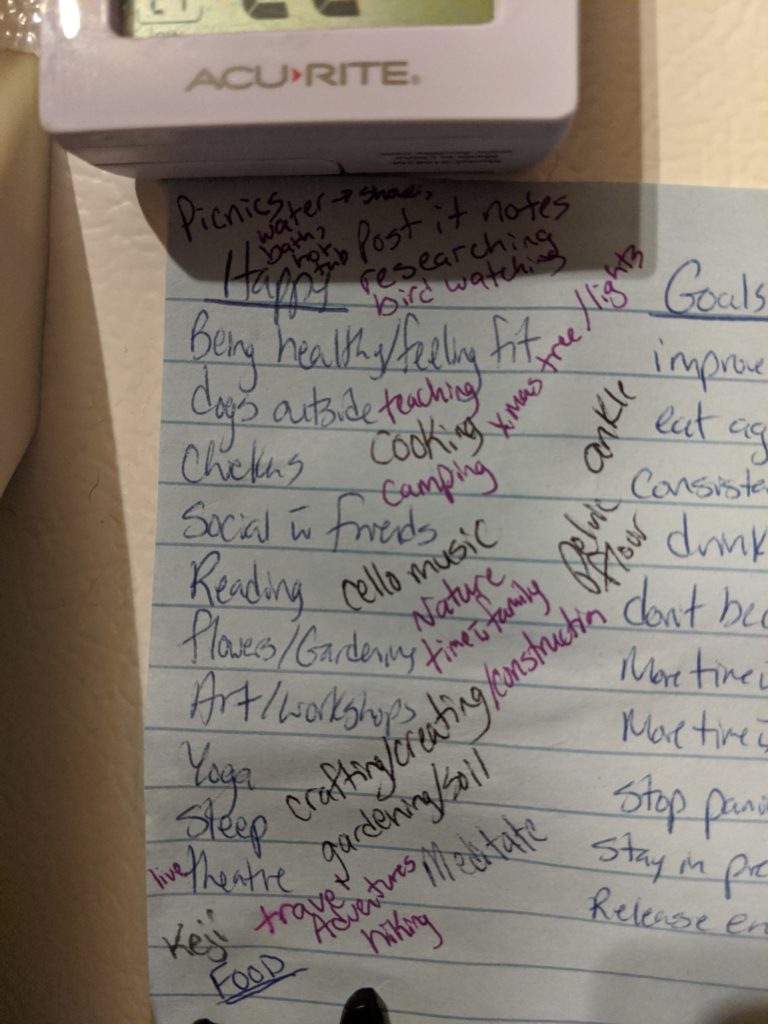 ACU RITE
Picnics
water → show,
bath,
hot
tub
Post it notes
researching
bird watching
Happy
Being healthy/feeling fit
dogs outside
teaching
xmas tree/lights
Cooking
Chickens
camping
Social w̄ friends
Reading
cello music
Nature
flowers/Gardening
time w̄ family
Art/workshops
crafting/creating/constructin
Yoga
gardening/soil
Sleep
live theatre
Meditate
travel
Adventures
hiking
Keji
FOOD
ankle
pelvic
floor
Goals
improve
eat ag
Consiste
drink
dont bec
More time w̄
More time w̄
Stop pani
Stay in pre
Release en